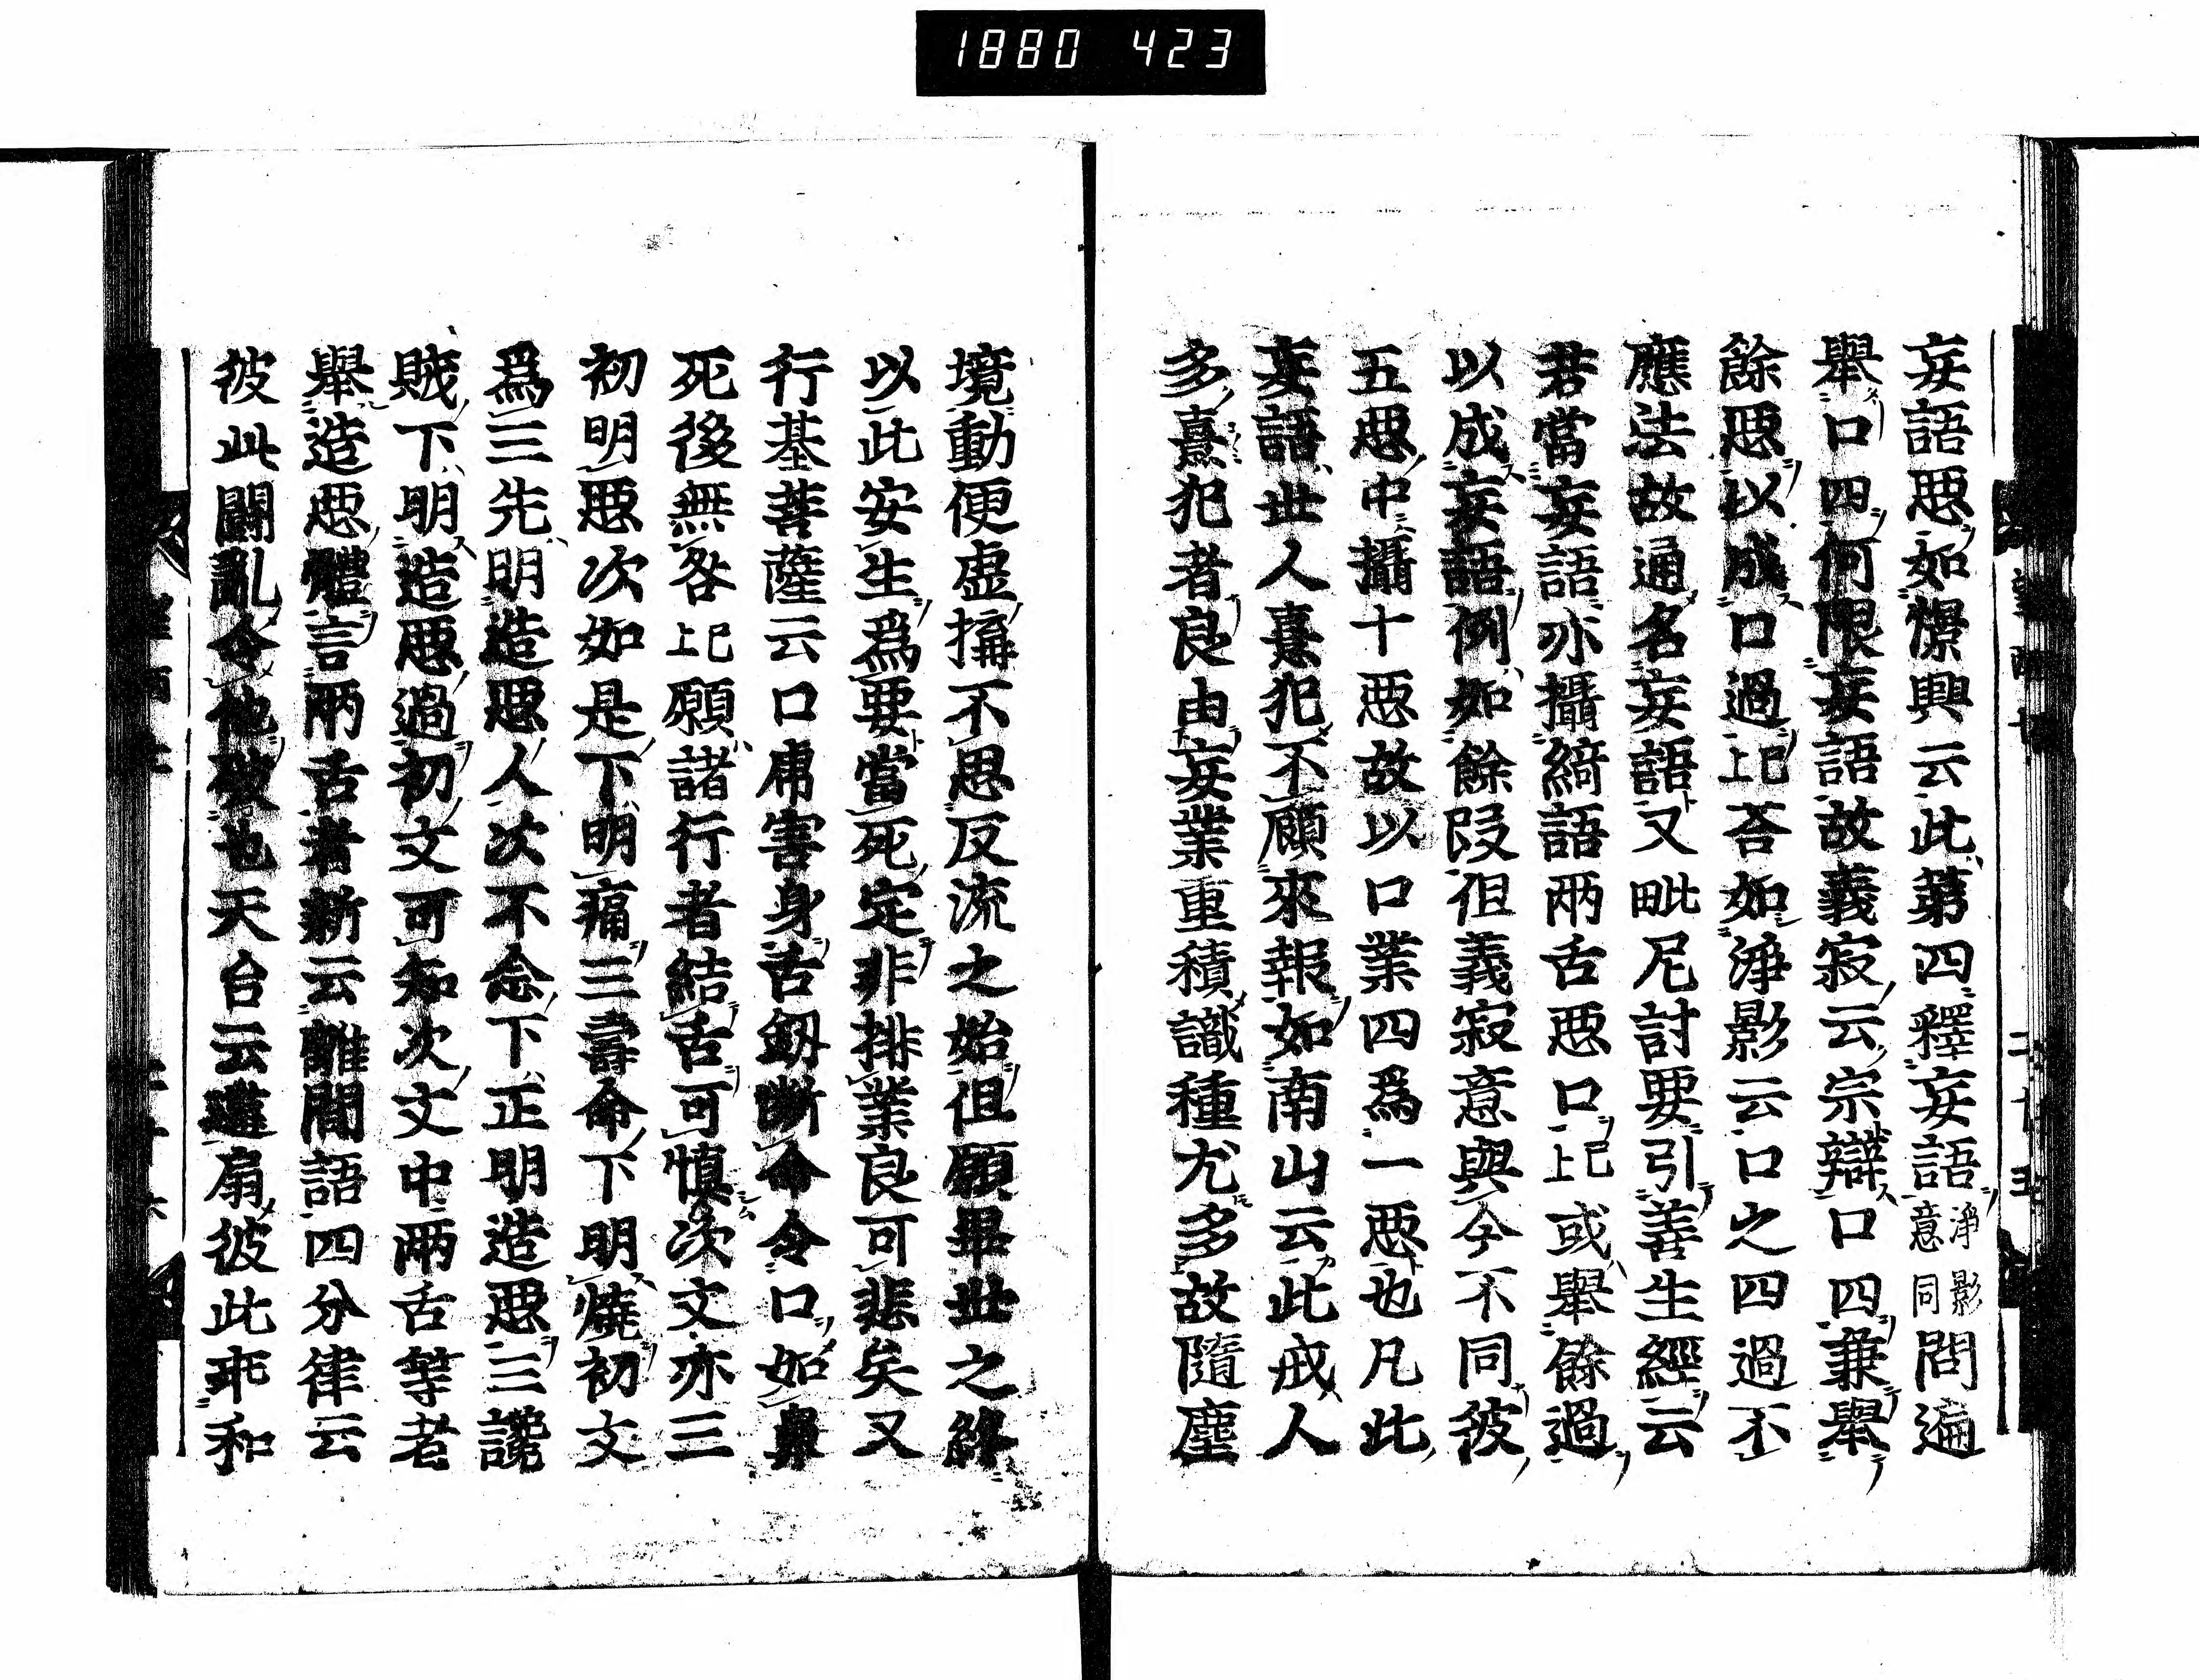 1880 423
妄語惡如憬興云此第四釋妄語淨影意同問遍
舉口四何限妄語故義寂云宗辯口四兼舉
餘惡以成口過上已荅如淨影云口之四過不
應法故通名妄語又毗尼討要引善生經云
若當妄語亦攝綺語兩舌惡口上已或舉餘過
以成妄語例如餘段但義寂意與今不同彼
五惡中攝十惡故以口業四爲一惡也凡此
妄語世人熹犯不顧來報如南山云此戒人
多熹犯者良由妄業重積識種尤多故隨塵
境動便虛搆不思反流之始但願畢世之終
以此安生爲要當死定非排業良可悲矣又
行基菩薩云口虎害身舌釰斷命令口如鼻
死後無咎上已願諸行者結舌可慎次文亦三
初明惡次如是下明痛三壽命下明燒初文
爲三先明造惡人次不念下正明造惡三讒
賊下明造惡過初文可知次文中兩舌等者
舉造惡體言兩舌者新云離間語四分律云
彼此鬪亂令他破也天台云遘扇彼此乖和